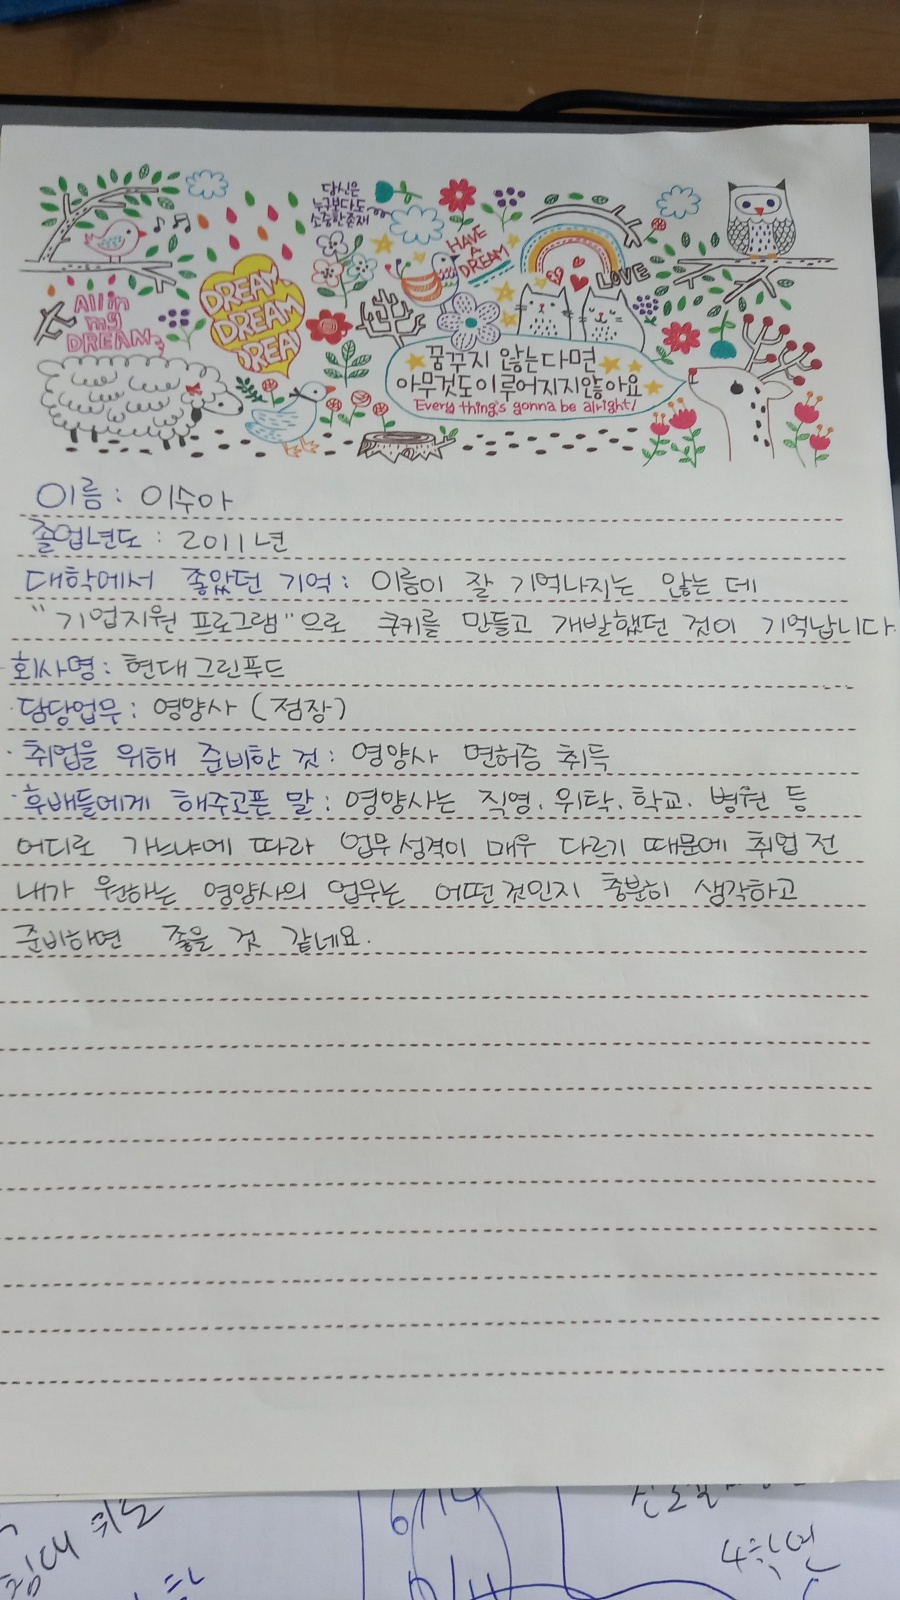 당신은
누구보다도
소중한존재
HAVE
A
DREAM
LOVE
DREAM.
DREAM
DREA
All in
my
DREAM
꿈꾸지 않는다면
아무것도이루어지지않아요
Every thing's gonna be alright!
이름 : 이수아
졸업년도 : 2011년
대학에서 좋았던 기억 : 이름이 잘 기억나지는 않는 데
"기업지원 프로그램"으로 쿠키를 만들고 개발했던 것이 기억납니다.
회사명 : 현대그린푸드
담당업무 : 영양사 (점장)
· 취업을 위해 준비한 것 : 영양사 면허증 취득
· 후배들에게 해주고픈 말 : 영양사는 직영, 위탁, 학교, 병원 등
어디로 가느냐에 따라 업무성격이 매우 다르기 때문에 취업 전
내가 원하는 영양사의 업무는 어떤것인지 충분히 생각하고
준비하면 좋을 것 같네요.
6/14
4학년